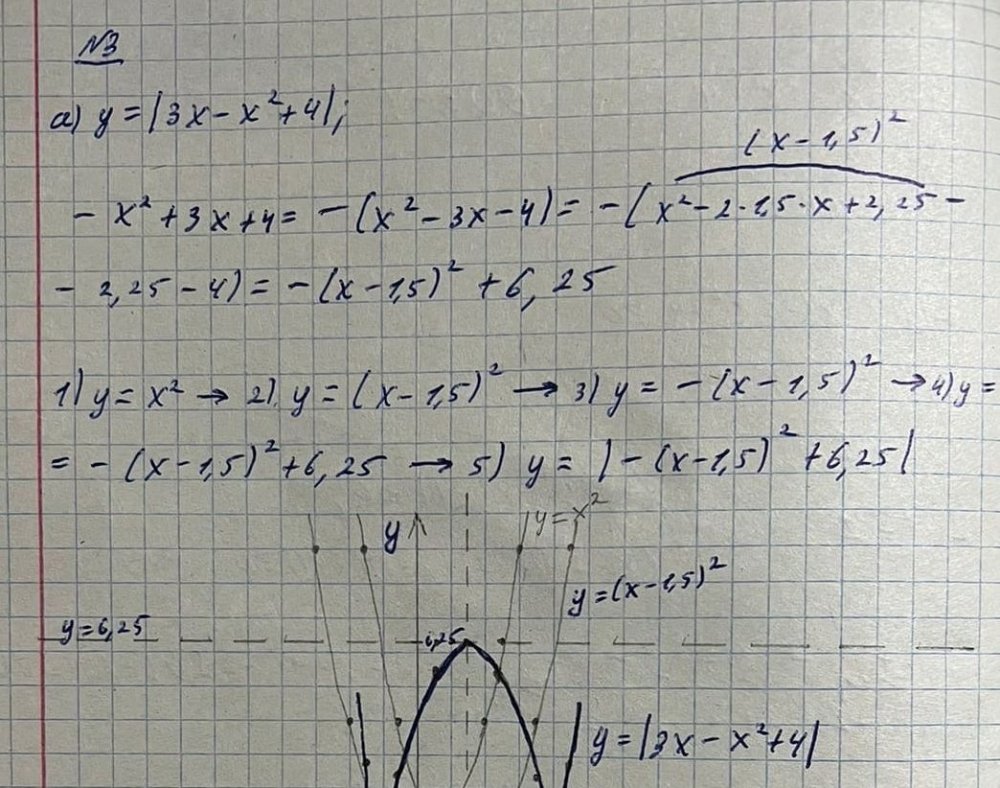 №3
а) y = |3x - x² + 4|;
(x - 1,5)²
- x² + 3x + 4 = -(x² - 3x - 4) = -(x² - 2·1,5·x + 2,25 -
- 2,25 - 4) = -(x - 1,5)² + 6,25
1) y = x² → 2) y = (x - 1,5)² → 3) y = -(x - 1,5)² → 4) y =
= -(x - 1,5)² + 6,25 → 5) y = |-(x - 1,5)² + 6,25|
y
y = x²
y = (x - 1,5)²
y = 6,25
6,25
y = |3x - x² + 4|